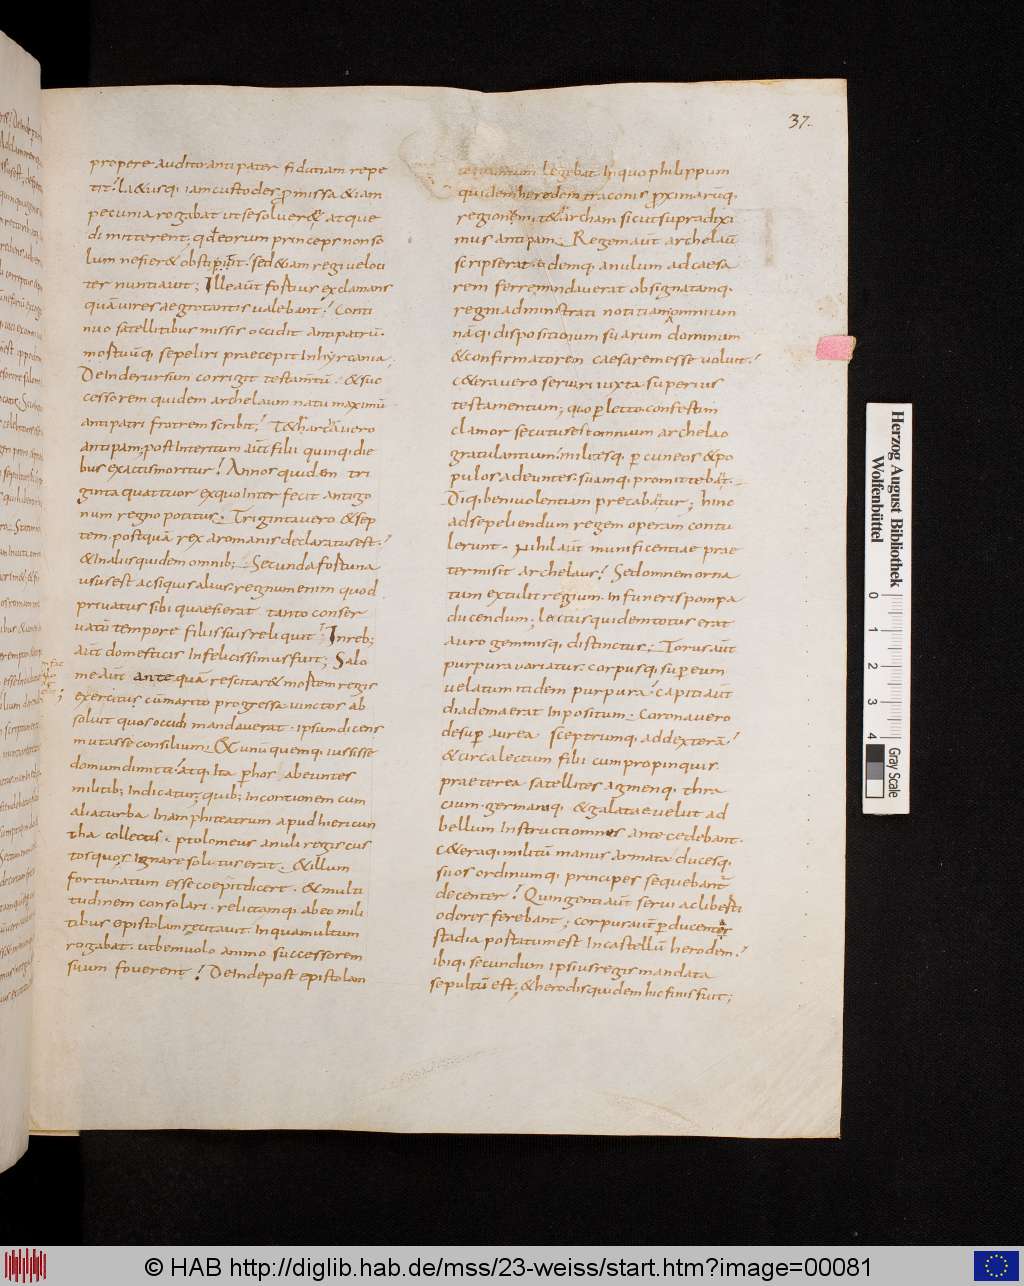 37.
propere auditoantipater fidutiam repe
tit? l&usq; iamcustodes, promissa &iam
pecunia rogabat utsesoluer& atque
dimitterent, qđeorum princeps nonso
lum nefier& obstitit? sed&iam regi veloci
ter nuntiavit; Illeaūt fortius exclamans
quāvires aegrotantis valebant? Conti
nuo satellitibus missis occidit antipatrū.
mortuūq; sepeliri praecepit Inhyrcania.
Deinderursum corrigit testamtū. &suc
cessorem quidem archelaum natu maximū
antipatri fratrem scribit? T&harchā vero
antipam; post Interitum aūt filii quinq; die
bus exactis moritur? Annos quidem tri
ginta quattuor exquo Inter fecit antigo
num regno potatus. Triginta vero &sep
tem. postquā rex aromanis declaratusest?
&Inaliis quidem omnib; Secunda fortuna
usus est acsiquis alius. regnum enim quod
privatus sibi quaesierat tanto conser
vatū tempore filiis suis reliquit? Inreb;
aūt domesticis Infelicissimus fuit; Salo
me aūt ante quā rescitar& mortem regis
exercitus cū marito progressa vinctos āb
soluit quos occidi mandaverat. ipsum dicens
mutasse consilium. &unū quemq; iussisse
domum dimitti? atq; Ita p̄ hos abeuntes
militib; Indicatur, quib; Incontionem cum
alia turba In amphiteatrum apud hiericun
tha collectis. ptolomeus anuli regis cus
tos quos Ignare solitus erat. &illum
fortunatum esse coepit dicere. &multi
tudinem consolari. relictamq; ab eo mili
tibus epistolam recitavit. In qua multum
rogabat. ut benivolo animo successorem
suum foverent? Deinde post epistolam
legebat In quo philippum
quidem heredem traconis proximarūq;
regionem, t&rarcham sicut supra dixi
mus antipam; Regem aūt archelaū
scripserat eidemq; anulum ad caesa
rem ferre mandaverat obsignatamq;
regni administrati notitiam omnium
nāq; dispositionum suarum dominum
&confirmatorem caesarem esse voluit?
C&era vero servari iuxta superius
testamentum; quo plecto. confestim
clamor secutus est omnium archelao
gratulantium? militesq; p cuneos &po
pulos adeuntes. suamq; promittebāt.
Diq; benivolentiam precabātur; hinc
ad sepeliendum regem operam contu
lerunt. Nihil aūt munificentiae prae
termisit archelaus? Sed omnem orna
tum extulit regium. In funeris pompa
ducendum; lectus quidem totus erat
auro gemmisq; distinctus; Torus aūt
purpura variatus. corpusq; sup eum
velatum itidem purpura? Capiti aūt
diadema erat Inpositum. Corona vero
desup aurea sceptrumq; ad dexterā?
&circa lectum filii cum propinquis.
praeterea satellites agmenq; thra
cium. germanūq; &galatae velut ad
bellum Instructi omnes ante cedebant.
C&eraq; militū manus armata ducesq;
suos ordinumq; principes sequebant
decenter? Quingenti aūt servi ac liberti
odores ferebant; corpus aūt p ducentos
stadia portatum est In castellū herodem?
ibiq; secundum ipsius regis mandata
sepultū est; &herodis quidem hic finis fuit;
Herzog August Bibliothek
Wolfenbüttel
0 1 2 3 4
Gray Scale
© HAB http://diglib.hab.de/mss/23-weiss/start.htm?image=00081